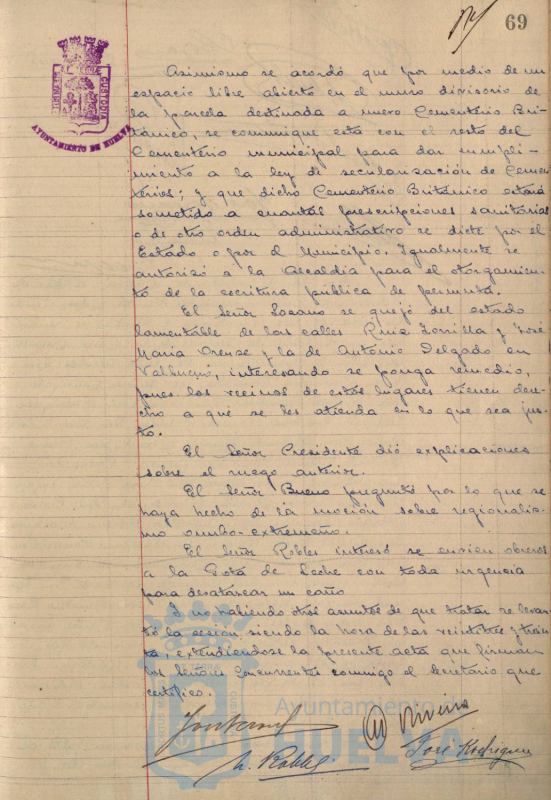 69
CUSTODIA
AYUNTAMIENTO DE HUELVA
Asimismo se acordó que por medio de un
espacio libre abierto en el muro divisorio de
la parcela destinada a nuevo Cementerio Bri-
tánico, se comunique esta con el resto del
Cementerio municipal para dar cumpli-
miento a la ley de secularización de Cemen-
terios; y que dicho Cementerio Británico estará
sometido a cuantas prescripciones sanitarias
o de otro orden administrativo se dicte por el
Estado o por el Municipio. Igualmente se
autorizó a la Alcaldía para el otorgamien-
to de la escritura pública de permuta.
El Señor Lozano se quejó del estado
lamentable de las calles Ruiz Zorrilla y José
María Orense y la de Antonio Delgado en
interesando se ponga remedio,
pues los vecinos de estos lugares tienen dere-
cho a que se les atienda en lo que sea jus-
to.
El Señor Presidente dió explicaciones
sobre el ruego anterior.
El Señor Bueno preguntó por lo que se
haya hecho de la moción sobre regionalis-
mo onubo-extremeño.
El Señor Robles interesó se envien obreros
a la Gota de Leche con toda urgencia
para desatascar un caño
Y no habiendo otros asuntos de que tratar se levan-
tó la sesión siendo la hora de las veintitres y trein-
ta, extendiendose la presente acta que firman
los Señores Concurrentes conmigo el Secretario que
certifico.
Ayuntamiento de
HUELVA
José Rodriguez
Robles